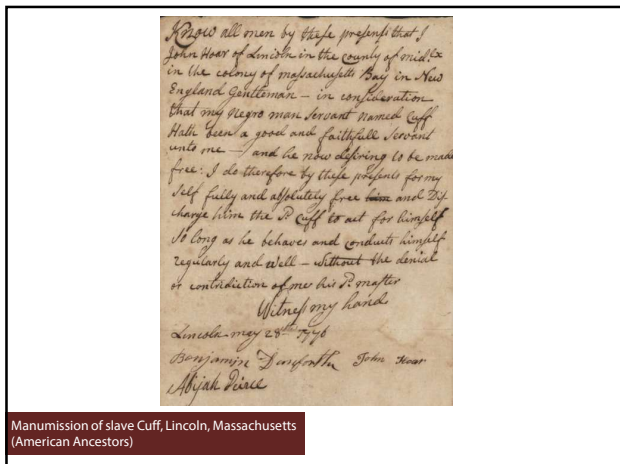 Know all men by these presents that I
John Hoar of Lincoln in the county of mid.lx
in the colony of massachusetts Bay in New
England Gentleman – in consideration
that my Negro man servant named Cuff
Hath been a good and faithfull Servant
unto me – and he now desiring to be made
free: I do therefore by these presents for my
self fully and absolutely free him and Dis-
charge him the Sd. Cuff to act for himself
so long as he behaves and conducts himself
regularly and well – without the denial
or contridiction of me his Sd. master
Witness my hand
Lincoln may 28th 1776
Benjamin Danforth John Hoar
Abijah Peirce
Manumission of slave Cuff, Lincoln, Massachusetts
(American Ancestors)